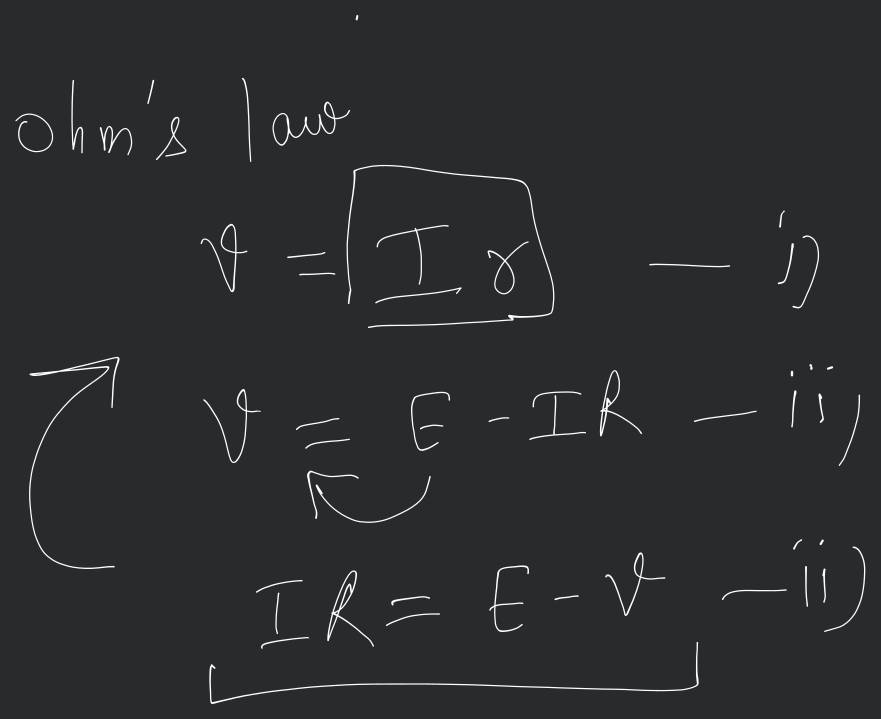 ohm's law
V = I r — i)
V = E - IR — ii)
IR = E - V — ii)